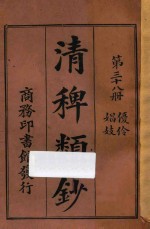 第三十八册
優伶
娼妓
清稗類鈔
商務印書館發行